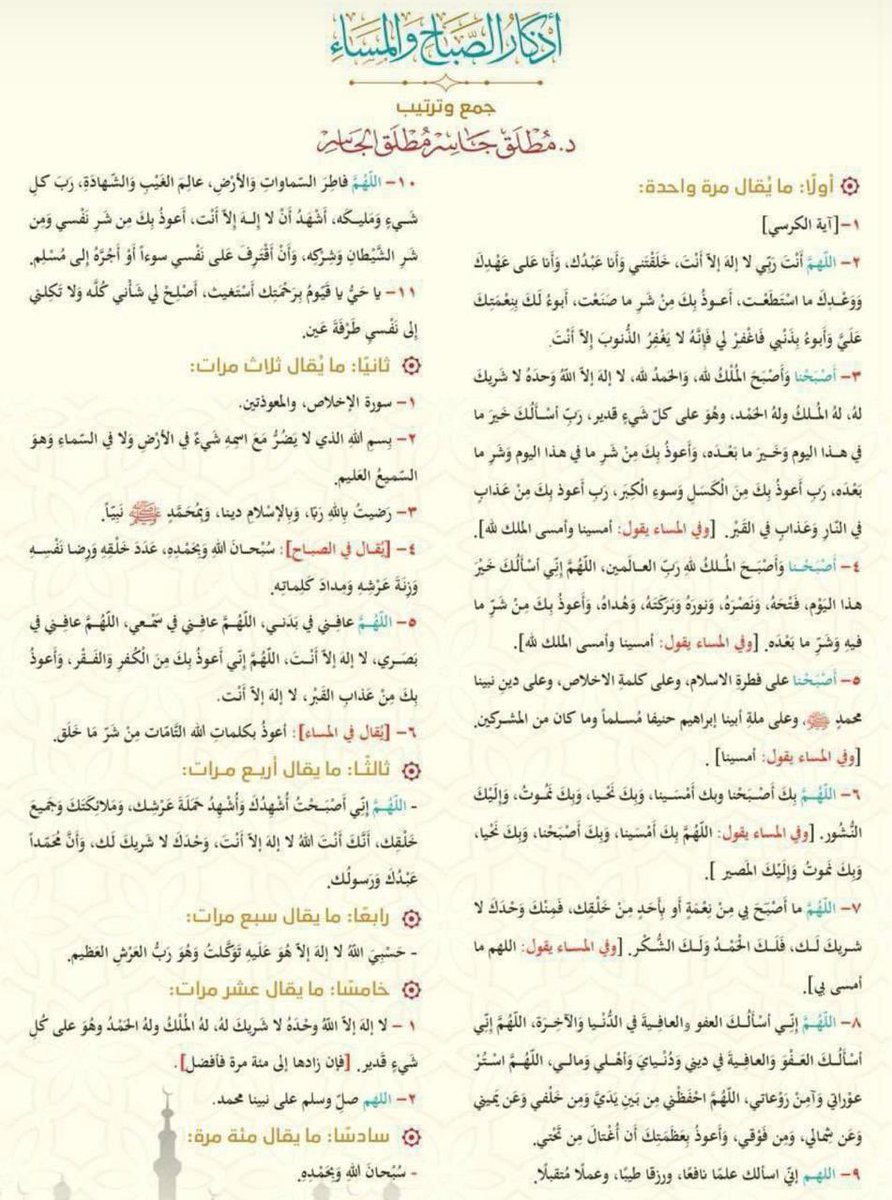 أذكار الصَّبَاح وَالمَسَاءِ
جمع وترتيب
د. مُطْلَق جَاسِر مُطْلَق الجَاسِر
أولًا: ما يُقال مرة واحدة:
١- [آية الكرسي]
٢- اللّهمَّ أَنْتَ رَبِّي لا إلهَ إلاّ أَنْتَ، خَلَقْتَني وَأَنا عَبْدُك، وَأَنا عَلى عَهْدِكَ
وَوَعْدِكَ ما اسْتَطَعْت، أَعوذُ بِكَ مِنْ شَرِّ ما صَنَعْت، أَبوءُ لَكَ بِنِعْمَتِكَ
عَلَيَّ وَأَبوءُ بِذَنْبي فَاغْفِرْ لي فَإِنَّهُ لا يَغْفِرُ الذُّنوبَ إِلاّ أَنْتَ.
٣- أَصْبَحْنا وَأَصْبَحَ المُلْكُ لله، وَالحَمدُ لله، لا إلهَ إلاّ اللّهُ وَحدَهُ لا شَريكَ
لهُ، لهُ المُلكُ ولهُ الحَمْد، وهُوَ على كلّ شَيءٍ قدير، رَبِّ أسْأَلُكَ خَيرَ ما
في هذا اليوم وَخَيرَ ما بَعْدَه، وَأَعوذُ بِكَ مِنْ شَرِ ما في هذا اليوم وَشَرِ ما
بَعْدَه، رَبِ أَعوذُ بِكَ مِنَ الْكَسَلِ وَسوءِ الْكِبَر، رَبِ أَعوذ بِكَ مِنْ عَذابٍ
في النّارِ وَعَذابٍ في القَبْر. [وفي المساء يقول: أمسينا وأمسى الملك لله].
٤- أَصْبَحْنا وَأَصْبَحَ المُلكُ للهِ رَبِّ العالَمين، اللّهُمَّ إِنِّي أسْأَلُكَ خَيْرَ
هذا اليَوْم، فَتْحَهُ، وَنَصْرَهُ، وَنورَهُ وَبَرَكَتَهُ، وَهُداهُ، وَأَعوذُ بِكَ مِنْ شَرِّ ما
فيهِ وَشَرِّ ما بَعْدَه. [وفي المساء يقول: أمسينا وأمسى الملك لله].
٥- أَصْبَحْنا على فطرةِ الاسلام، وعلى كلمةِ الاخلاص، وعلى دينِ نبينا
محمدٍ ﷺ، وعلى ملةِ أبينا إبراهيم حنيفا مُسلماً وما كان من المشركين.
[وفي المساء يقول: أمسينا].
٦- اللّهُمَّ بِكَ أَصْبَحْنا وبك أمْسَينا، وَبِكَ نَحْيا، وَبِكَ نَمُوتُ، وَإِلَيْكَ
النُّشُور. [وفي المساء يقول: اللّهُمَّ بِكَ أَمْسَينا، وَبِكَ أَصْبَحْنا، وَبِكَ نَحْيا،
وَبِكَ نَموتُ وَإِلَيْكَ المَصير ].
٧- اللّهُمَّ ما أَصْبَحَ بي مِنْ نِعْمَةٍ أَو بِأَحَدٍ مِنْ خَلْقِك، فَمِنْكَ وَحْدَكَ لا
شريكَ لَك، فَلَكَ الْحَمْدُ وَلَكَ الشُّكْر. [وفي المساء يقول: اللهم ما
أمسى بي].
٨- اللّهُمَّ إِنّي أسْأَلُكَ العفو والعافِيةَ في الدُّنْيا وَالآخِرَة، اللّهُمَّ إِنِّي
أسْأَلُكَ العَفْوَ وَالعافِيةَ في ديني وَدُنْيايَ وَأهْلي وَمالي، اللّهُمَّ اسْتُرْ
عوْراتي وَآمِنْ رَوْعاتي، اللّهُمَّ احْفَظْني مِن بَينِ يَدَيَّ وَمِن خَلْفي وَعَن يَميني
وَعَن شِمالي، وَمِن فَوْقي، وَأَعوذُ بِعَظَمَتِكَ أَن أُغْتالَ مِن تَحْتي.
٩- اللهم إنّي اسالك علمًا نافعًا، ورزقا طيبًا، وعملًا مُتقبلًا.
١٠- اللّهُمَّ فاطِرَ السّماواتِ وَالأرْضِ، عالِمَ الغَيْبِ وَالشّهادَةِ، رَبَ كلِ
شَيءٍ وَمَليكَه، أَشْهَدُ أَنْ لا إِلهَ إِلاّ أَنْت، أَعوذُ بِكَ مِن شَرِ نَفْسي وَمِن
شَرِ الشَّيْطانِ وَشِرْكِه، وَأَنْ أَقْتَرِفَ عَلى نَفْسي سوءاً أَوْ أَجُرَّهُ إِلى مُسْلِم.
١١- يا حَيُّ يا قَيّومُ بِرَحْمَتِك أَسْتَغيث، أَصْلِحْ لي شَأْني كُلَّه وَلا تَكِلني
إِلى نَفْسي طَرْفَةَ عَين.
ثانيًا: ما يُقال ثلاث مرات:
١- سورة الإخلاص، والمعوذتين.
٢- بِسمِ اللهِ الذي لا يَضُرُّ مَعَ اسمِهِ شَيءٌ في الأرْضِ وَلا في السّماءِ وَهوَ
السّميعُ العَليم.
٣- رَضيتُ بِاللهِ رَبًا، وَبِالإسْلامِ دينا، وَبِمُحَمَّدٍ ﷺ نَبِيّاً.
٤- [يُقال في الصباح]: سُبْحانَ اللهِ وَبِحَمْدِهِ، عَدَدَ خَلْقِهِ وَرِضا نَفْسِهِ
وَزِنَةَ عَرْشِهِ وَمِدادَ كَلِماتِه.
٥- اللّهُمَّ عافِني في بَدَني، اللّهُمَّ عافِني في سَمْعي، اللّهُمَّ عافِني في
بَصَري، لا إلهَ إلاّ أَنْتَ، اللّهُمَّ إِنّي أَعوذُ بِكَ مِنَ الْكُفرِ وَالفَقْر، وَأَعوذُ
بِكَ مِنْ عَذابِ القَبْر، لا إلهَ إلاّ أَنْت.
٦- [يُقال في المساء]: أعوذُ بكلماتِ الله التَّامّات مِنْ شَرّ مَا خَلَق.
ثالثًا: ما يقال أربع مرات:
- اللّهُمَّ إِنِّي أَصْبَحْتُ أُشْهِدُكَ وَأُشْهِدُ حَمَلَةَ عَرْشِك، وَمَلائكَتَكَ وَجَميعَ
خَلْقِك، أَنَّكَ أَنْتَ اللهُ لا إلهَ إلاّ أَنْتَ، وَحْدَكَ لا شَريكَ لَك، وَأَنَّ مُحَمّداً
عَبْدُكَ وَرَسولُك.
رابعًا: ما يقال سبع مرات:
- حَسْبِيَ اللهُ لا إلهَ إلاّ هُوَ عَلَيهِ تَوَكَّلتُ وَهُوَ رَبُّ العَرْشِ العَظيم.
خامسًا: ما يقال عشر مرات:
١- لا إلهَ إلاّ اللهُ وَحْدَهُ لا شَريكَ لهُ، لهُ المُلْكُ ولهُ الحَمْدُ وهُوَ على كُلِ
شَيءٍ قَدير. [فإن زادها إلى مئة مرة فأفضل].
٢- اللهم صلّ وسلم على نبينا محمد.
سادسًا: ما يقال مئة مرة:
- سُبْحانَ اللهِ وَبِحَمْدِهِ.